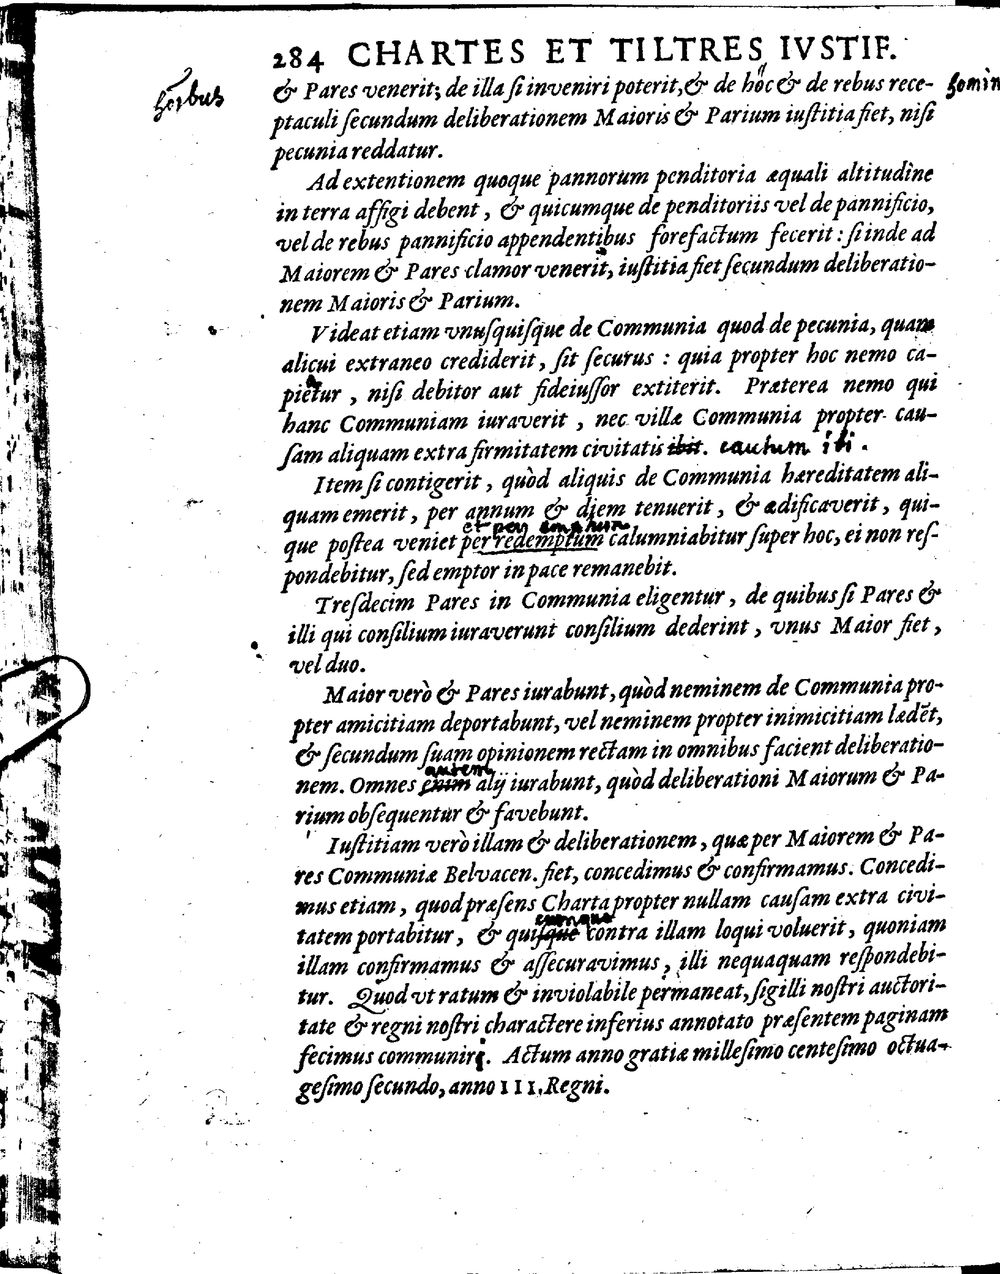 284 CHARTES ET TILTRES IVSTIF.
& Pares venerit; de illa ſi inveniri poterit, & de hoc & de rebus rece-
ptaculi ſecundum deliberationem Maioris & Parium iuſtitia fiet, niſi
pecunia reddatur.
Ad extentionem quoque pannorum penditoria æquali altitudine
in terra affigi debent, & quicumque de penditoriis vel de pannificio,
vel de rebus pannificio appendentibus forefactum fecerit: ſi inde ad
Maiorem & Pares clamor venerit, iuſtitia fiet ſecundum deliberatio-
nem Maioris & Parium.
Videat etiam vnuſquiſque de Communia quod de pecunia, quam
alicui extraneo crediderit, ſit ſecurus: quia propter hoc nemo ca-
pietur, niſi debitor aut fideiuſſor extiterit. Præterea nemo qui
hanc Communiam iuraverit, nec villæ Communia propter cau-
ſam aliquam extra firmitatem civitatis ibit. cautum iti.
Item ſi contigerit, quòd aliquis de Communia hæreditatem ali-
quam emerit, per annum & diem tenuerit, & ædificaverit, qui-
et per emptum
que poſtea veniet per redemptum calumniabitur ſuper hoc, ei non reſ-
pondebitur, ſed emptor in pace remanebit.
Treſdecim Pares in Communia eligentur, de quibus ſi Pares &
illi qui conſilium iuraverunt conſilium dederint, vnus Maior fiet,
vel duo.
Maior verò & Pares iurabunt, quòd neminem de Communia pro-
pter amicitiam deportabunt, vel neminem propter inimicitiam lædēt,
& ſecundum ſuam opinionem rectam in omnibus facient deliberatio-
autem
nem. Omnes enim alij iurabunt, quòd deliberationi Maiorum & Pa-
rium obſequentur & favebunt.
Iuſtitiam verò illam & deliberationem, quæ per Maiorem & Pa-
res Communiæ Belvacen. fiet, concedimus & confirmamus. Concedi-
mus etiam, quod præſens Charta propter nullam cauſam extra civi-
cumque
tatem portabitur, & quiſque contra illam loqui voluerit, quoniam
illam confirmamus & aſſecuravimus, illi nequaquam reſpondebi-
tur. Quod vt ratum & inviolabile permaneat, ſigilli noſtri auctori-
tate & regni noſtri charactere inferius annotato præſentem paginam
fecimus communiri. Actum anno gratiæ milleſimo centeſimo octua-
geſimo ſecundo, anno III. Regni.